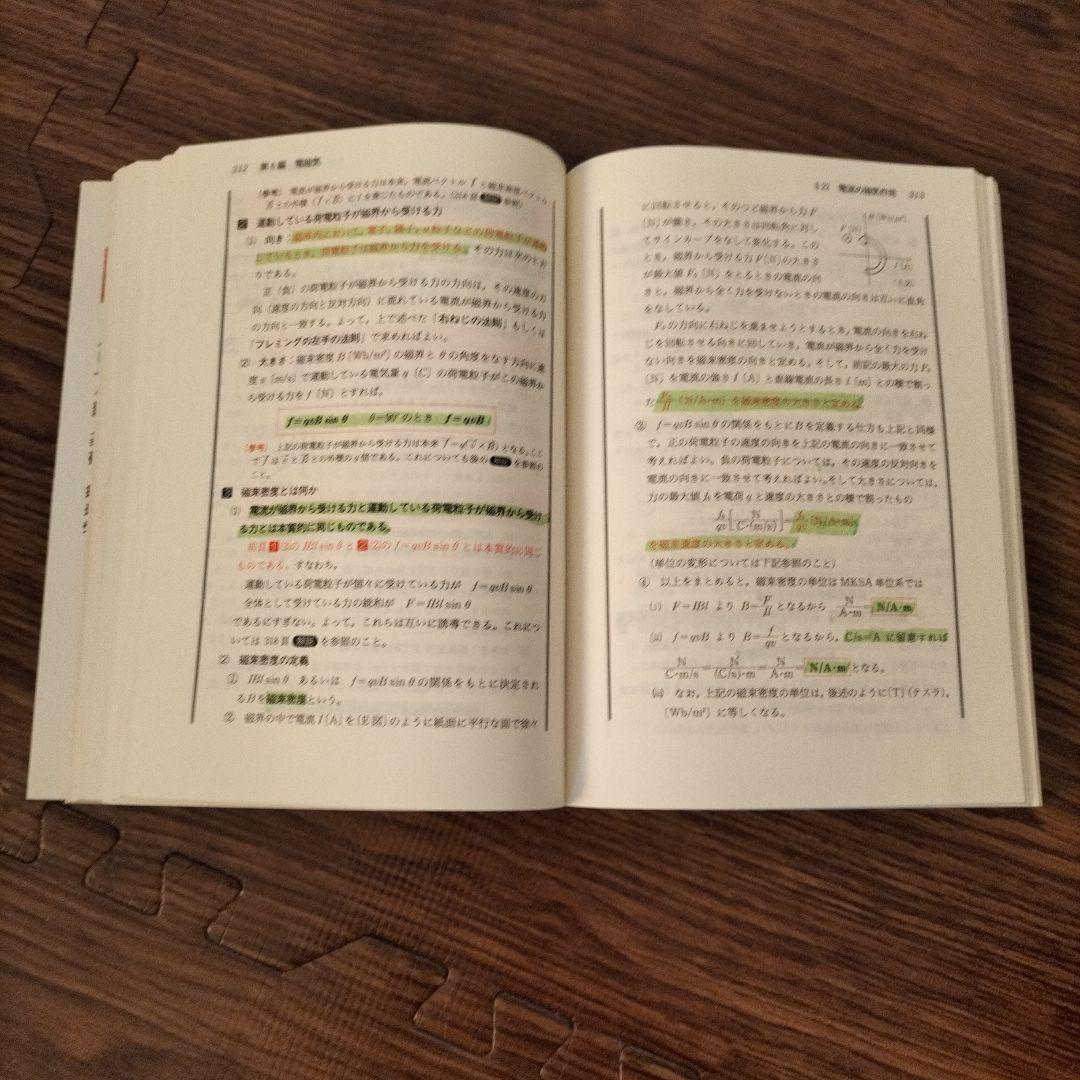 312 第5編 電磁気
[参考] 電流が磁界から受ける力は本来,電流ベクトル I と磁束密度ベクトル
B との外積 (I×B) に l を乗じたものである。
2 運動している荷電粒子が磁界から受ける力
(1) 向き:磁界内において,電子,陽子,α粒子などの荷電粒子が運動
しているとき,荷電粒子は磁界から力を受ける。その力は次のとお
りである。
正(負)の荷電粒子が磁界から受ける力の方向は,その速度の方
向(速度の方向と反対方向)に流れている電流が磁界から受ける力
の方向と一致する。よって,上で述べた「右ねじの法則」もしくは
「フレミングの左手の法則」で求めればよい。
(2) 大きさ:磁束密度 B〔Wb/m²〕の磁界と θ の角度をなす方向に速
度 v〔m/s〕で運動している電気量 q〔C〕の荷電粒子がこの磁界か
ら受ける力を f〔N〕とすれば,
f=qvB sin θ θ=90°のとき f=qvB
[参考] 上記の荷電粒子が磁界から受ける力は本来 f=q(v×B) となる。ここ
で f は v と B との外積の q 倍である。これについても後の 解説 を参照の
こと。
3 磁束密度とは何か
(1) 電流が磁界から受ける力と運動している荷電粒子が磁界から受け
る力とは本質的に同じものである。
前頁 1 (2)の IBl sin θ と 2 (2)の f=qvB sin θ とは本質的に同じ
ものである。すなわち,
運動している荷電粒子が個々に受けている力が f=qvB sin θ
全体として受けている力の総和が F=IBl sin θ
であるにすぎない。よって,これらは互いに誘導できる。これにつ
いては 318 頁 解説 を参照のこと。
(2) 磁束密度の定義
① IBl sin θ あるいは f=qvB sin θ の関係をもとに決定され
る B を磁束密度という。
② 磁界の中で電流 I〔A〕を〔E図〕のように紙面に平行な面で徐々
§22 電流の磁気作用 313
に回転させると,そのつど磁界から力 F
〔N〕が働き,その大きさは回転角に対し
てサインカーブをなして変化する。この
とき,磁界から受ける力 F〔N〕の大きさ
が最大値 F₀〔N〕をとるときの電流の向
きと,磁界から全く力を受けないときの電流の向きは互いに直角
をなしている。
F₀ の方向に右ねじを進ませようとするとき,電流の向きを右ね
じを回転させる向きに回していき,電流が磁界から全く力を受け
ない向きを磁束密度の向きと定める。そして,前記の最大の力 F₀
〔N〕を電流の強さ I〔A〕と直線電流の長さ l〔m〕との積で割っ
た F₀/Il〔N/A·m〕を磁束密度の大きさと定める。
③ f=qvB sin θ の関係をもとに B を定義する仕方も上記と同様
で,正の荷電粒子の速度の向きを上記の電流の向きに一致させて
考えればよい。負の荷電粒子については,その速度の反対向きを
電流の向きに一致させて考えればよい。そして大きさについては,
力の最大値 f₀ を電荷 q と速度の大きさとの積で割ったもの
f₀/qv [N/C·(m/s)] = f₀/qv〔N/A·m〕
を磁束密度の大きさと定める。
(単位の変形については下記参照のこと)
④ 以上をまとめると,磁束密度の単位は MKSA 単位系では
(i) F=IBl より B=F/Il となるから N/A·m=N/A·m
(ii) f=qvB より B=f/qv となるから,C/s=A に留意すれば
N/C·m/s=N/(C/s)·m=N/A·m=N/A·m となる。
(iii) なお,上記の磁束密度の単位は,後述のように〔T〕(テスラ),
〔Wb/m²〕に等しくなる。